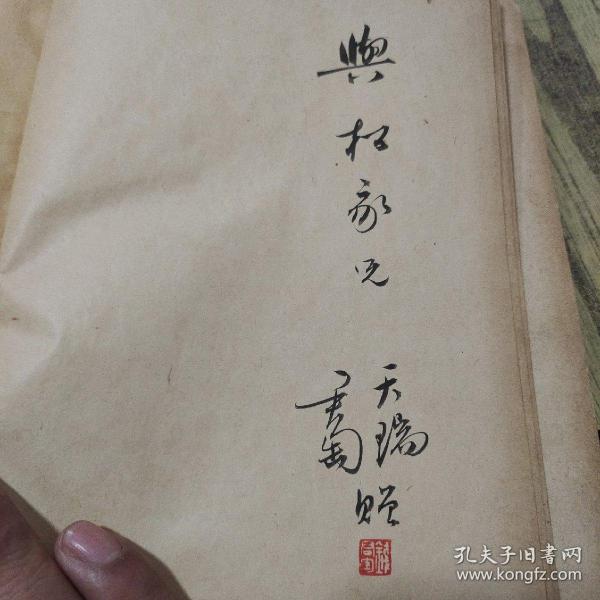 與松家兄
天瑞
贈
孔夫子旧书网
www.kongfz.com